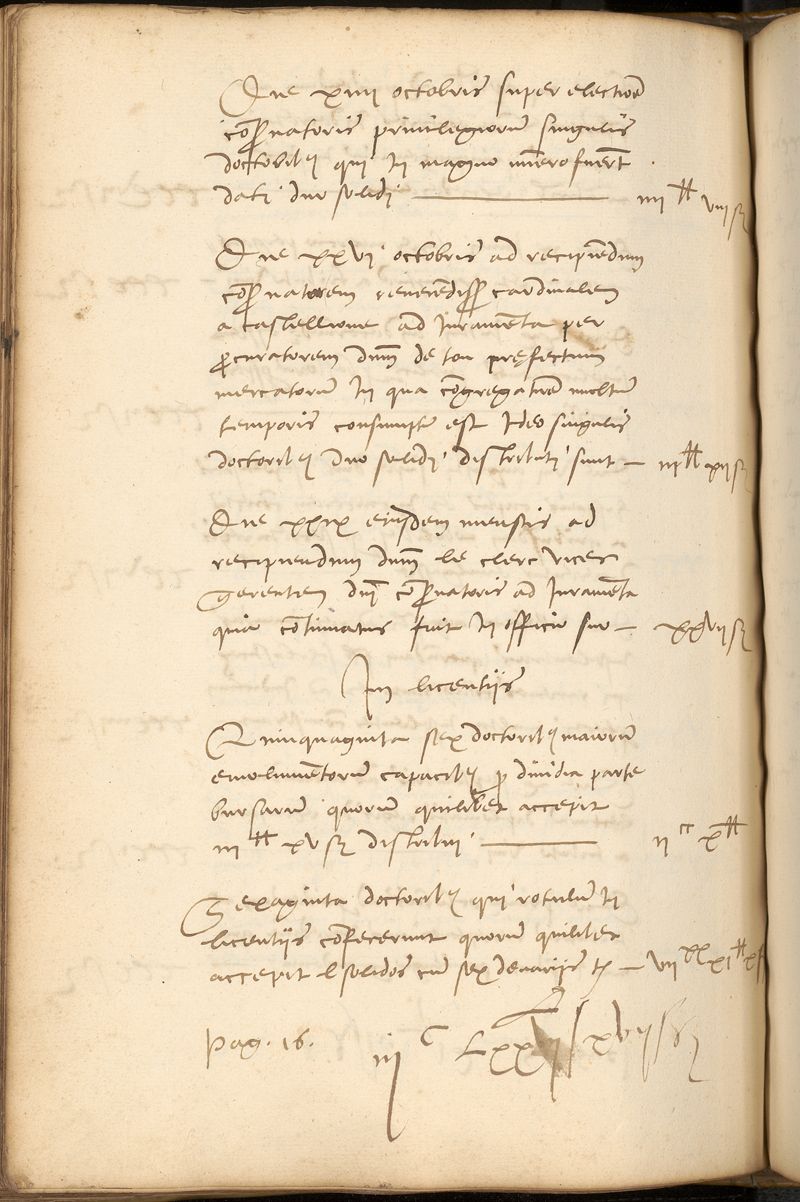 Die xiiii octobris super electione
co͠servatoris privilegiorum singulis
doctorib9 qui in magno nu͠ero fuer͠t
dati duo solidi — iiii ll viii s
Die xxvi octobris ad recipie͠dum
co͠servatorem revere͠diss cardinalem
a castellione ad iurame͠ta per
p͠curatorem dnm͠ de tou pręfectum
mercatorum in qua co͠gregatio͠e multum
temporis consumptu͠ est Ideo singulis
doctorib9 duo solidi distributi sunt — iiii ll xii s
Die xxix eiusdem mensis ad
recipiendum dnm͠ le clerc vices
gerentem dni͠ co͠servatoris ad iurame͠ta
quia co͠tinuatus fuit in officio suo — xxvii s
In licentijs
Quinquaginta sex doctorib9 maiorum
emolume͠torum capacib9 p͠ dimidia parte
bursarum quorum quilibet accepit
iii ll xv s distribui — ii cc x ll
Sexaginta doctorib9 qui rotulum in
licentijs co͠fecerunt quorum quilibet
accepit l solidos cum sex denarijs t — vii xx xi ll x s
Pag. 16. iij C Lxx xvij s